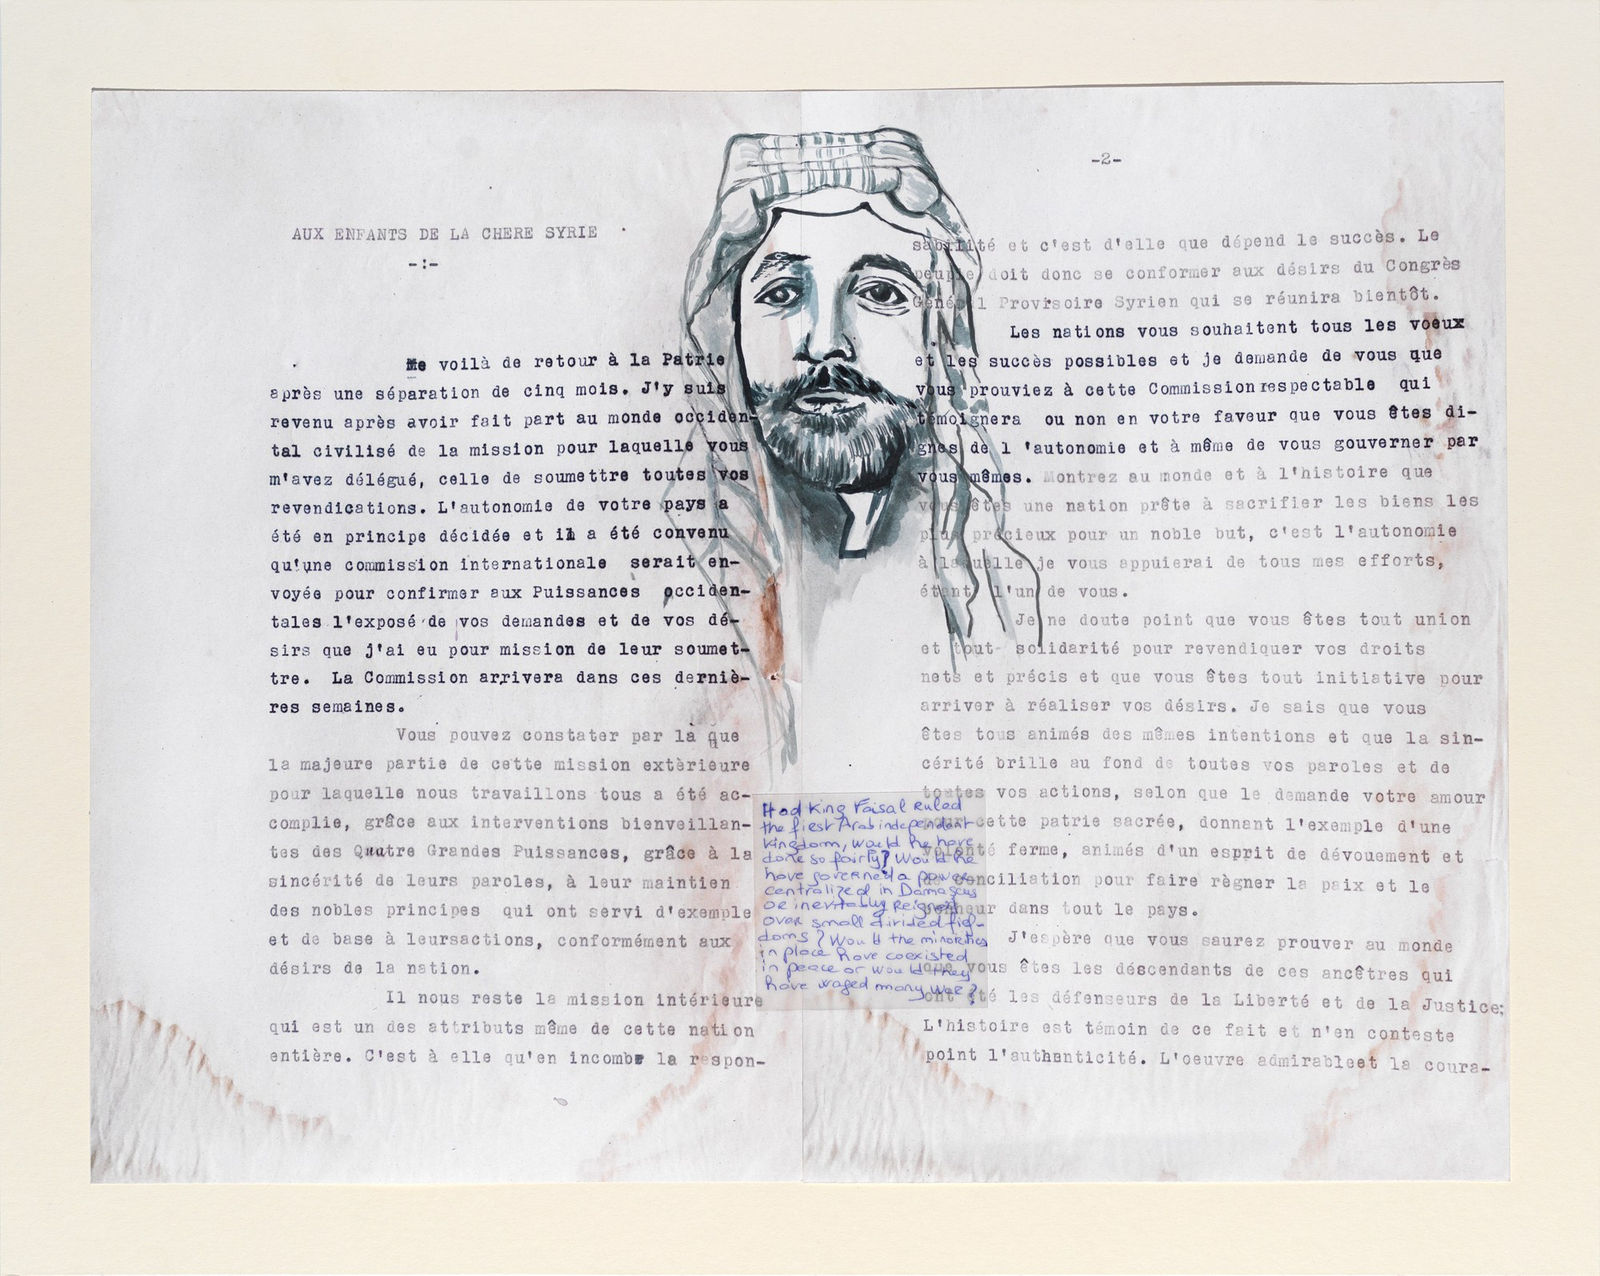 AUX ENFANTS DE LA CHERE SYRIE
-:-
Me voilà de retour à la Patrie
après une séparation de cinq mois. J'y suis
revenu après avoir fait part au monde occiden-
tal civilisé de la mission pour laquelle vous
m'avez délégué, celle de soumettre toutes vos
revendications. L'autonomie de votre pays a
été en principe décidée et il a été convenu
qu'une commission internationale serait en-
voyée pour confirmer aux Puissances occiden-
tales l'exposé de vos demandes et de vos dé-
sirs que j'ai eu pour mission de leur soumet-
tre. La Commission arrivera dans ces derniè-
res semaines.
Vous pouvez constater par là que
la majeure partie de cette mission extèrieure
pour laquelle nous travaillons tous a été ac-
complie, grâce aux interventions bienveillan-
tes des Quatre Grandes Puissances, grâce à la
sincérité de leurs paroles, à leur maintien
des nobles principes qui ont servi d'exemple
et de base à leursactions, conformément aux
désirs de la nation.
Il nous reste la mission intérieure
qui est un des attributs même de cette nation
entière. C'est à elle qu'en incombe la respon-
-2-
sabilité et c'est d'elle que dépend le succès. Le
peuple doit donc se conformer aux désirs du Congrès
Général Provisoire Syrien qui se réunira bientôt.
Les nations vous souhaitent tous les voeux
et les succès possibles et je demande de vous que
vous prouviez à cette Commission respectable qui
témoignera ou non en votre faveur que vous êtes di-
gnes de l'autonomie et à même de vous gouverner par
vous mêmes. Montrez au monde et à l'histoire que
vous êtes une nation prête à sacrifier les biens les
plus précieux pour un noble but, c'est l'autonomie
à laquelle je vous appuierai de tous mes efforts,
étant l'un de vous.
Je ne doute point que vous êtes tout union
et tout solidarité pour revendiquer vos droits
nets et précis et que vous êtes tout initiative pour
arriver à réaliser vos désirs. Je sais que vous
êtes tous animés des mêmes intentions et que la sin-
cérité brille au fond de toutes vos paroles et de
toutes vos actions, selon que le demande votre amour
pour cette patrie sacrée, donnant l'exemple d'une
volonté ferme, animés d'un esprit de dévouement et
de conciliation pour faire règner la paix et le
bonheur dans tout le pays.
J'espère que vous saurez prouver au monde
que vous êtes les déscendants de ces ancêtres qui
ont été les défenseurs de la Liberté et de la Justice;
L'histoire est témoin de ce fait et n'en conteste
point l'authenticité. L'oeuvre admirableet la coura-
Had King Faisal Ruled
the first Arab independent
kingdom, would he have
done so fairly? Would he
have governed a power
centralized in Damascus
or inevitably Reigned
over small divided fief-
doms? Would the minorities
in place have coexisted
in peace or would they
have waged many war?